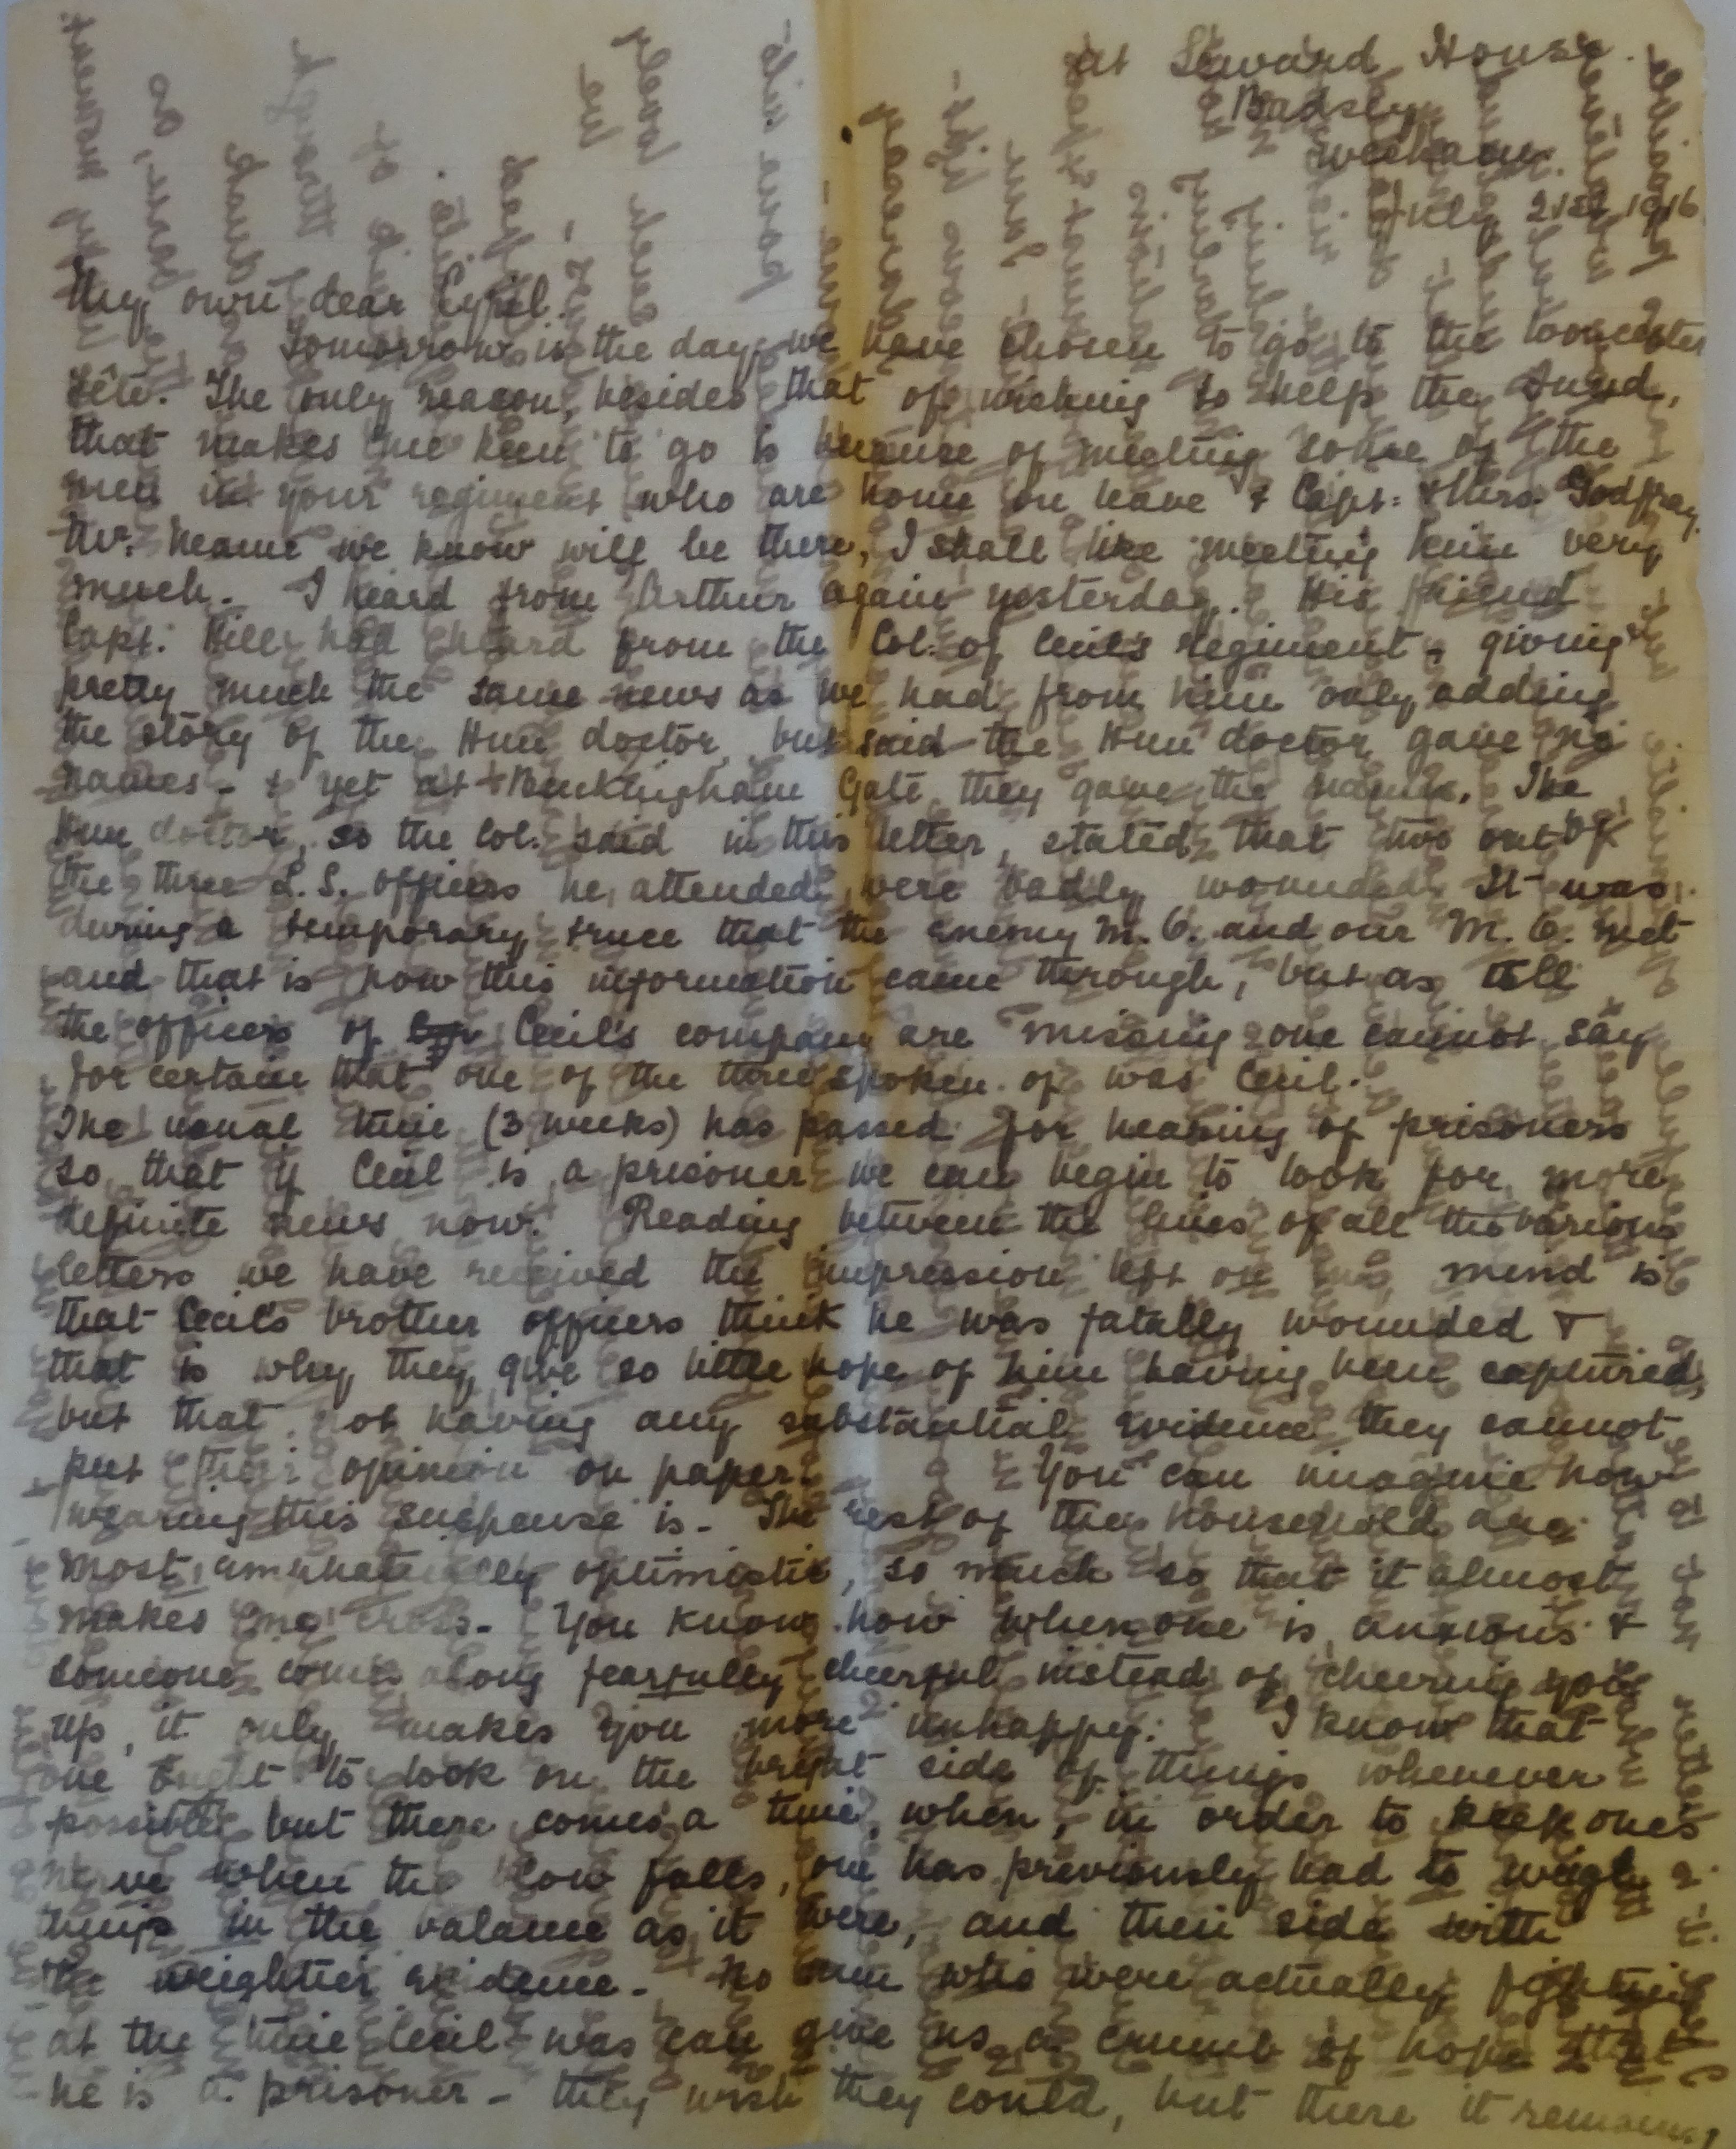 at Seward House.
Badsey
Evesham.
July 21st 1916
My own dear Cyril.
Tomorrow is the day we have chosen to go to the Worcester
Fête. The only reason, besides that of wishing to help the Fund,
that makes me keen to go is because of meeting some of the
men in your regiment who are home on leave & Capt: & Mrs. Godfray.
Mr. we know will be there, I shall like meeting him very
much. I heard from Arthur again yesterday. His friend
Capt. Hill had heard from the Col: of Cecil's regiment - giving
pretty much the same news as we had from him only adding
the story of the Hun doctor, but said the Hun doctor gave no
names - & yet at Buckingham Gate they gave the name. The
Hun doctor, so the Col. said in this letter, stated that two out of
the three L.S. officers he attended were badly wounded. It was
during a temporary truce that the enemy M.O. and our M.O. met
and that is how this information came through, but as all
the officers of Cecil's company are missing one cannot say
for certain that one of the three spoken of was Cecil.
The usual time (3 weeks) has passed for hearing of prisoners
so that if Cecil is a prisoner we can begin to look for more
definite news now. Reading between the lines of all the various
letters we have received the impression left on my mind is
that Cecil's brother officers think he was fatally wounded &
that is why they give so little hope of him having been captured,
but that not having any substantial evidence they cannot
put their opinion on paper. You can imagine how
wearing this suspense is. The rest of the household are
most emphatically optimistic, so much so that it almost
makes me cross. You know how when one is anxious &
someone comes along fearfully cheerful instead of cheering you
up, it only makes you more unhappy. I know that
one ought to look on the bright side of things whenever
possible but there comes a time, when, in order to keep ones
nerve when the blow falls, one has previously had to weigh
things in the balance as it were, and then side with
the weightier evidence. No men who were actually fighting
at the time Cecil was can give us a crumb of hope that
he is a prisoner - they wish they could, but there it remains,